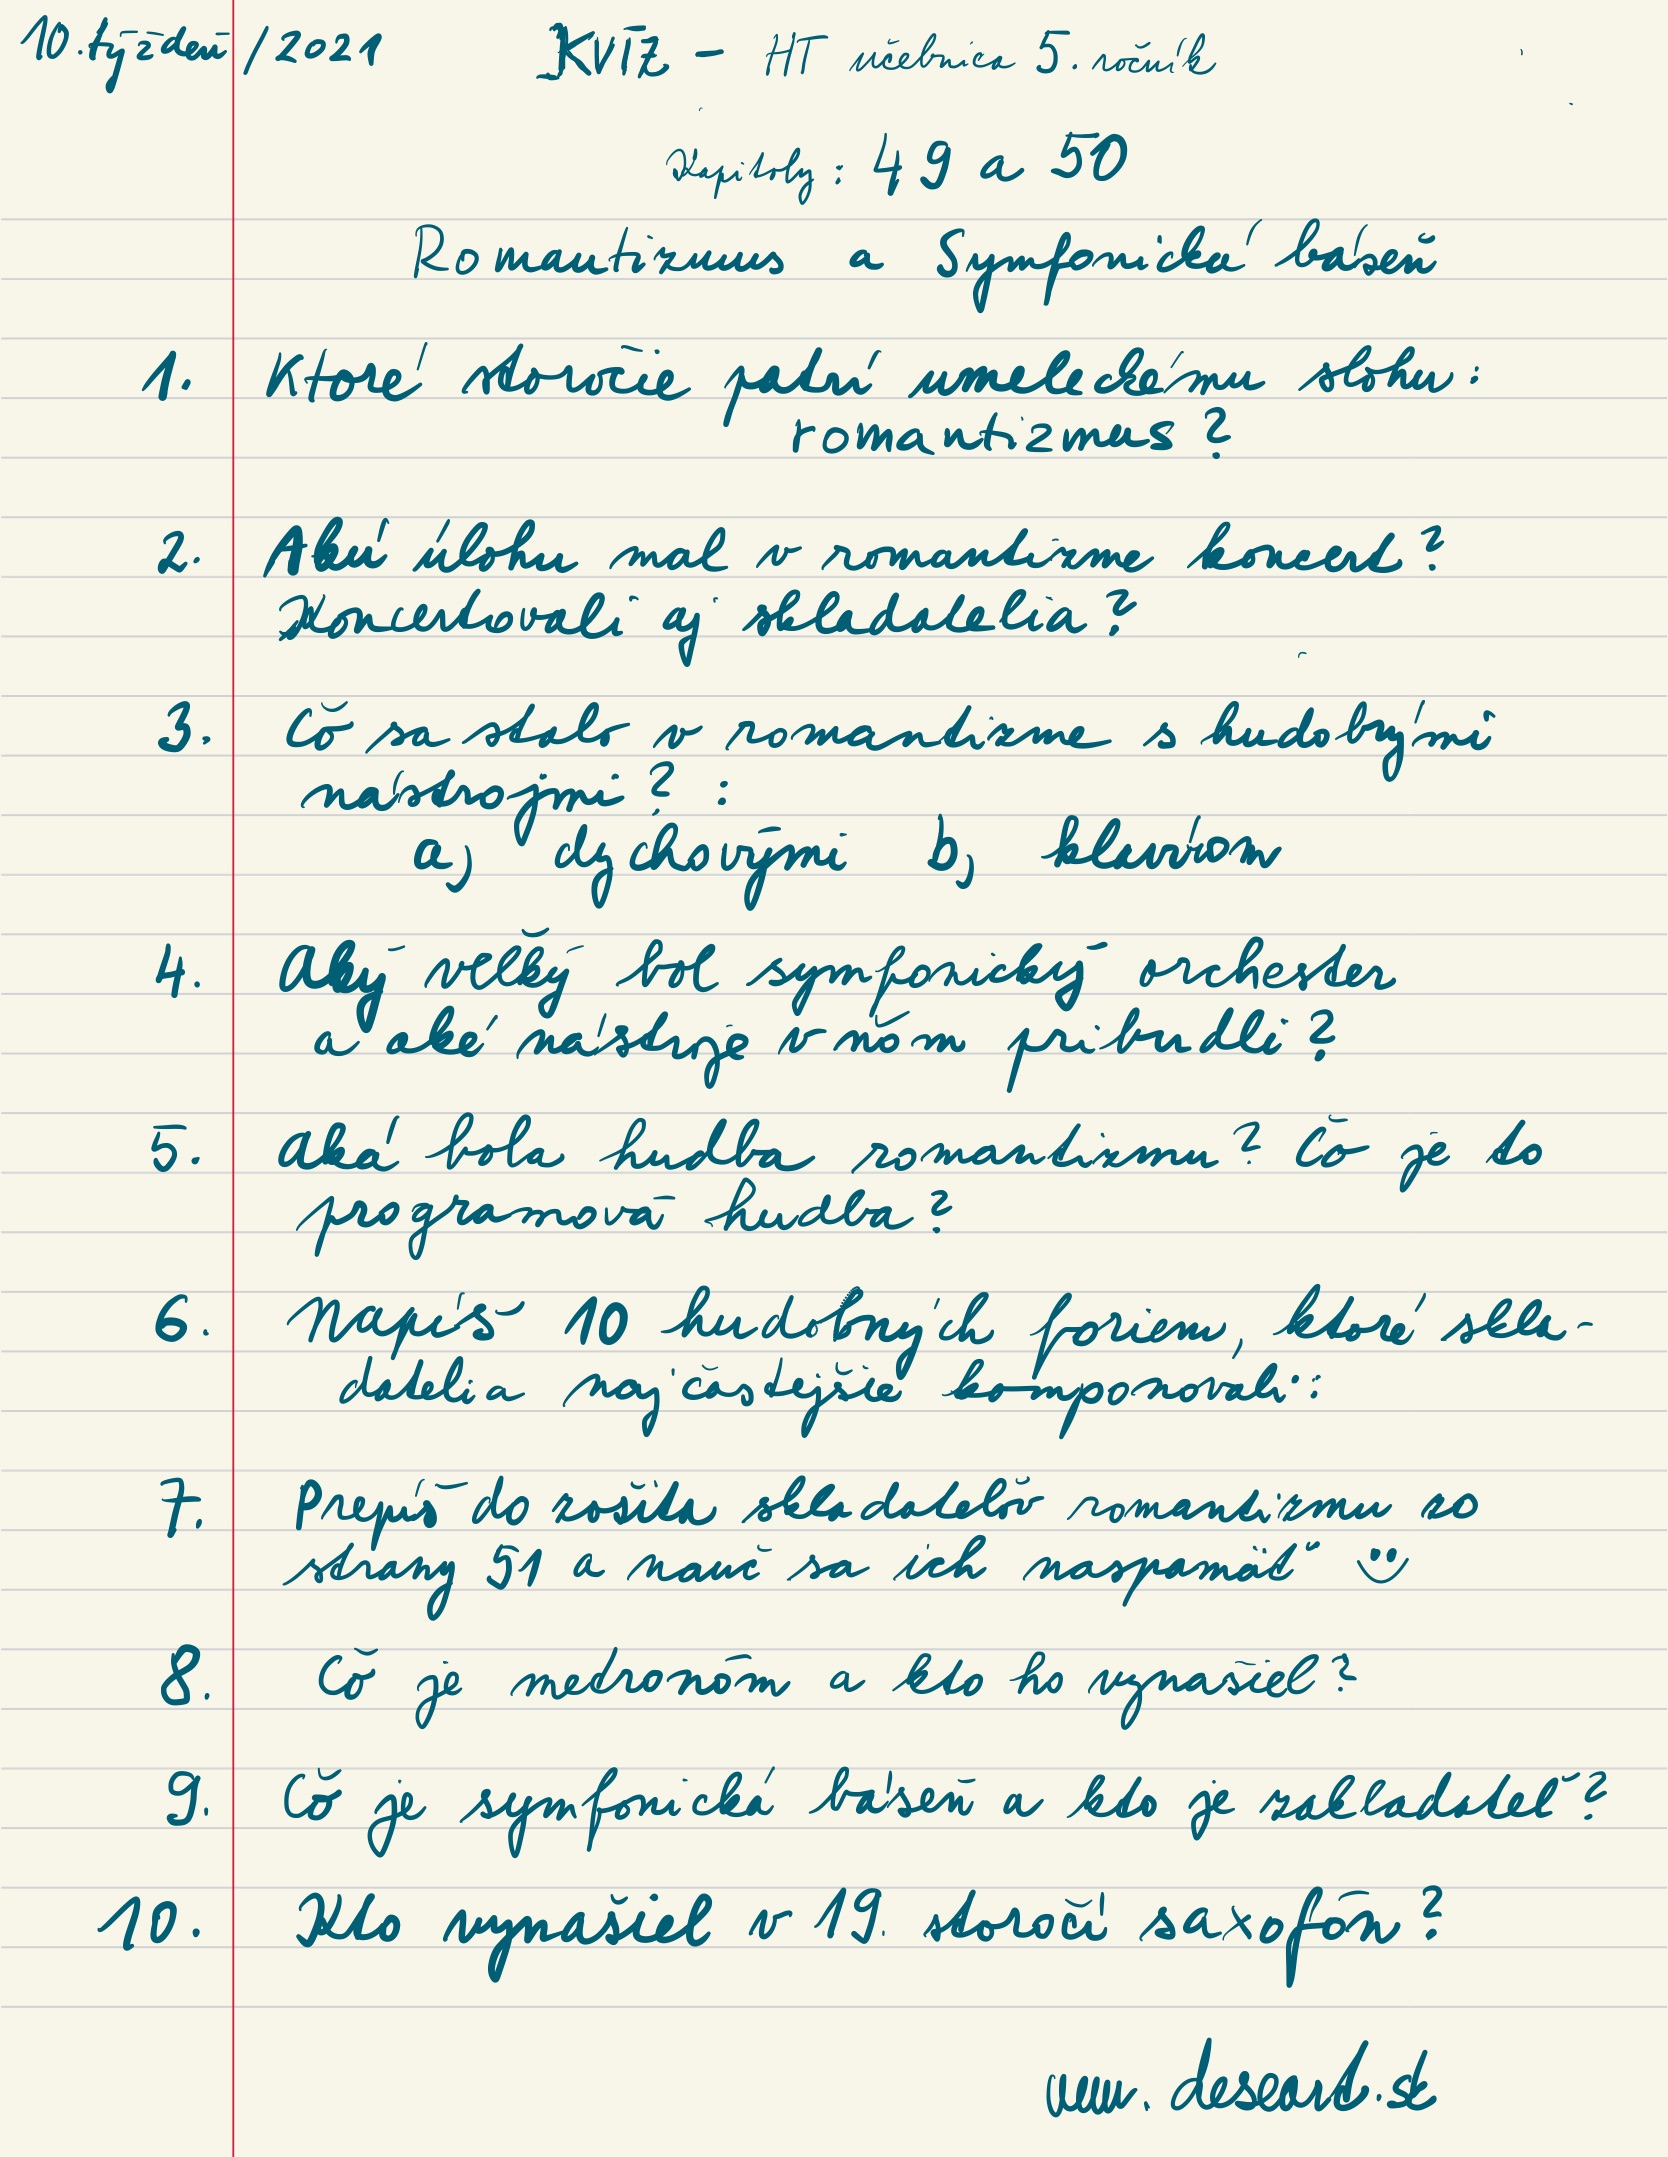 10. týždeň / 2021 KVÍZ - HT učebnica 5. ročník
Kapitoly: 49 a 50
Romantizmus a Symfonická báseň
1. Ktoré storočie patrí umeleckému slohu:
romantizmus?
2. Akú úlohu mal v romantizme koncert?
Koncertovali aj skladatelia?
3. Čo sa stalo v romantizme s hudobnými
nástrojmi? :
a, dychovými b, klavírom
4. Aký veľký bol symfonický orchester
a aké nástroje v ňom pribudli?
5. Aká bola hudba romantizmu? Čo je to
programová hudba?
6. Napíš 10 hudobných foriem, ktoré skla-
datelia najčastejšie komponovali:
7. Prepíš do zošita skladateľov romantizmu zo
strany 51 a nauč sa ich naspamäť
8. Čo je metronóm a kto ho vynašiel?
9. Čo je symfonická báseň a kto je zakladateľ?
10. Kto vynašiel v 19. storočí saxofón?
www.deseart.sk